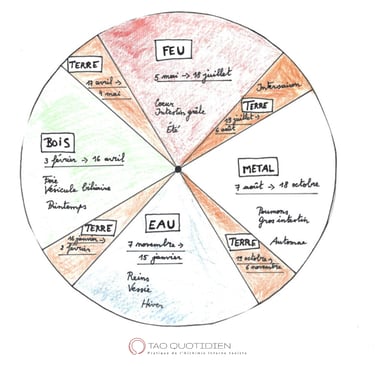 FEU
5 mai → 18 juillet
Coeur
Intestin grêle
Été
TERRE
19 juillet →
6 août
Intersaison
METAL
7 août → 18 octobre
Poumons
Gros intestin
Automne
TERRE
19 octobre →
6 novembre
EAU
7 novembre →
15 janvier
Reins
Vessie
Hiver
TERRE
16 janvier →
2 février
BOIS
3 février → 16 avril
Foie
Vésicule biliaire
Printemps
TERRE
17 avril →
4 mai
TAO QUOTIDIEN
Pratique de l'Alchimie Interne Taoïste